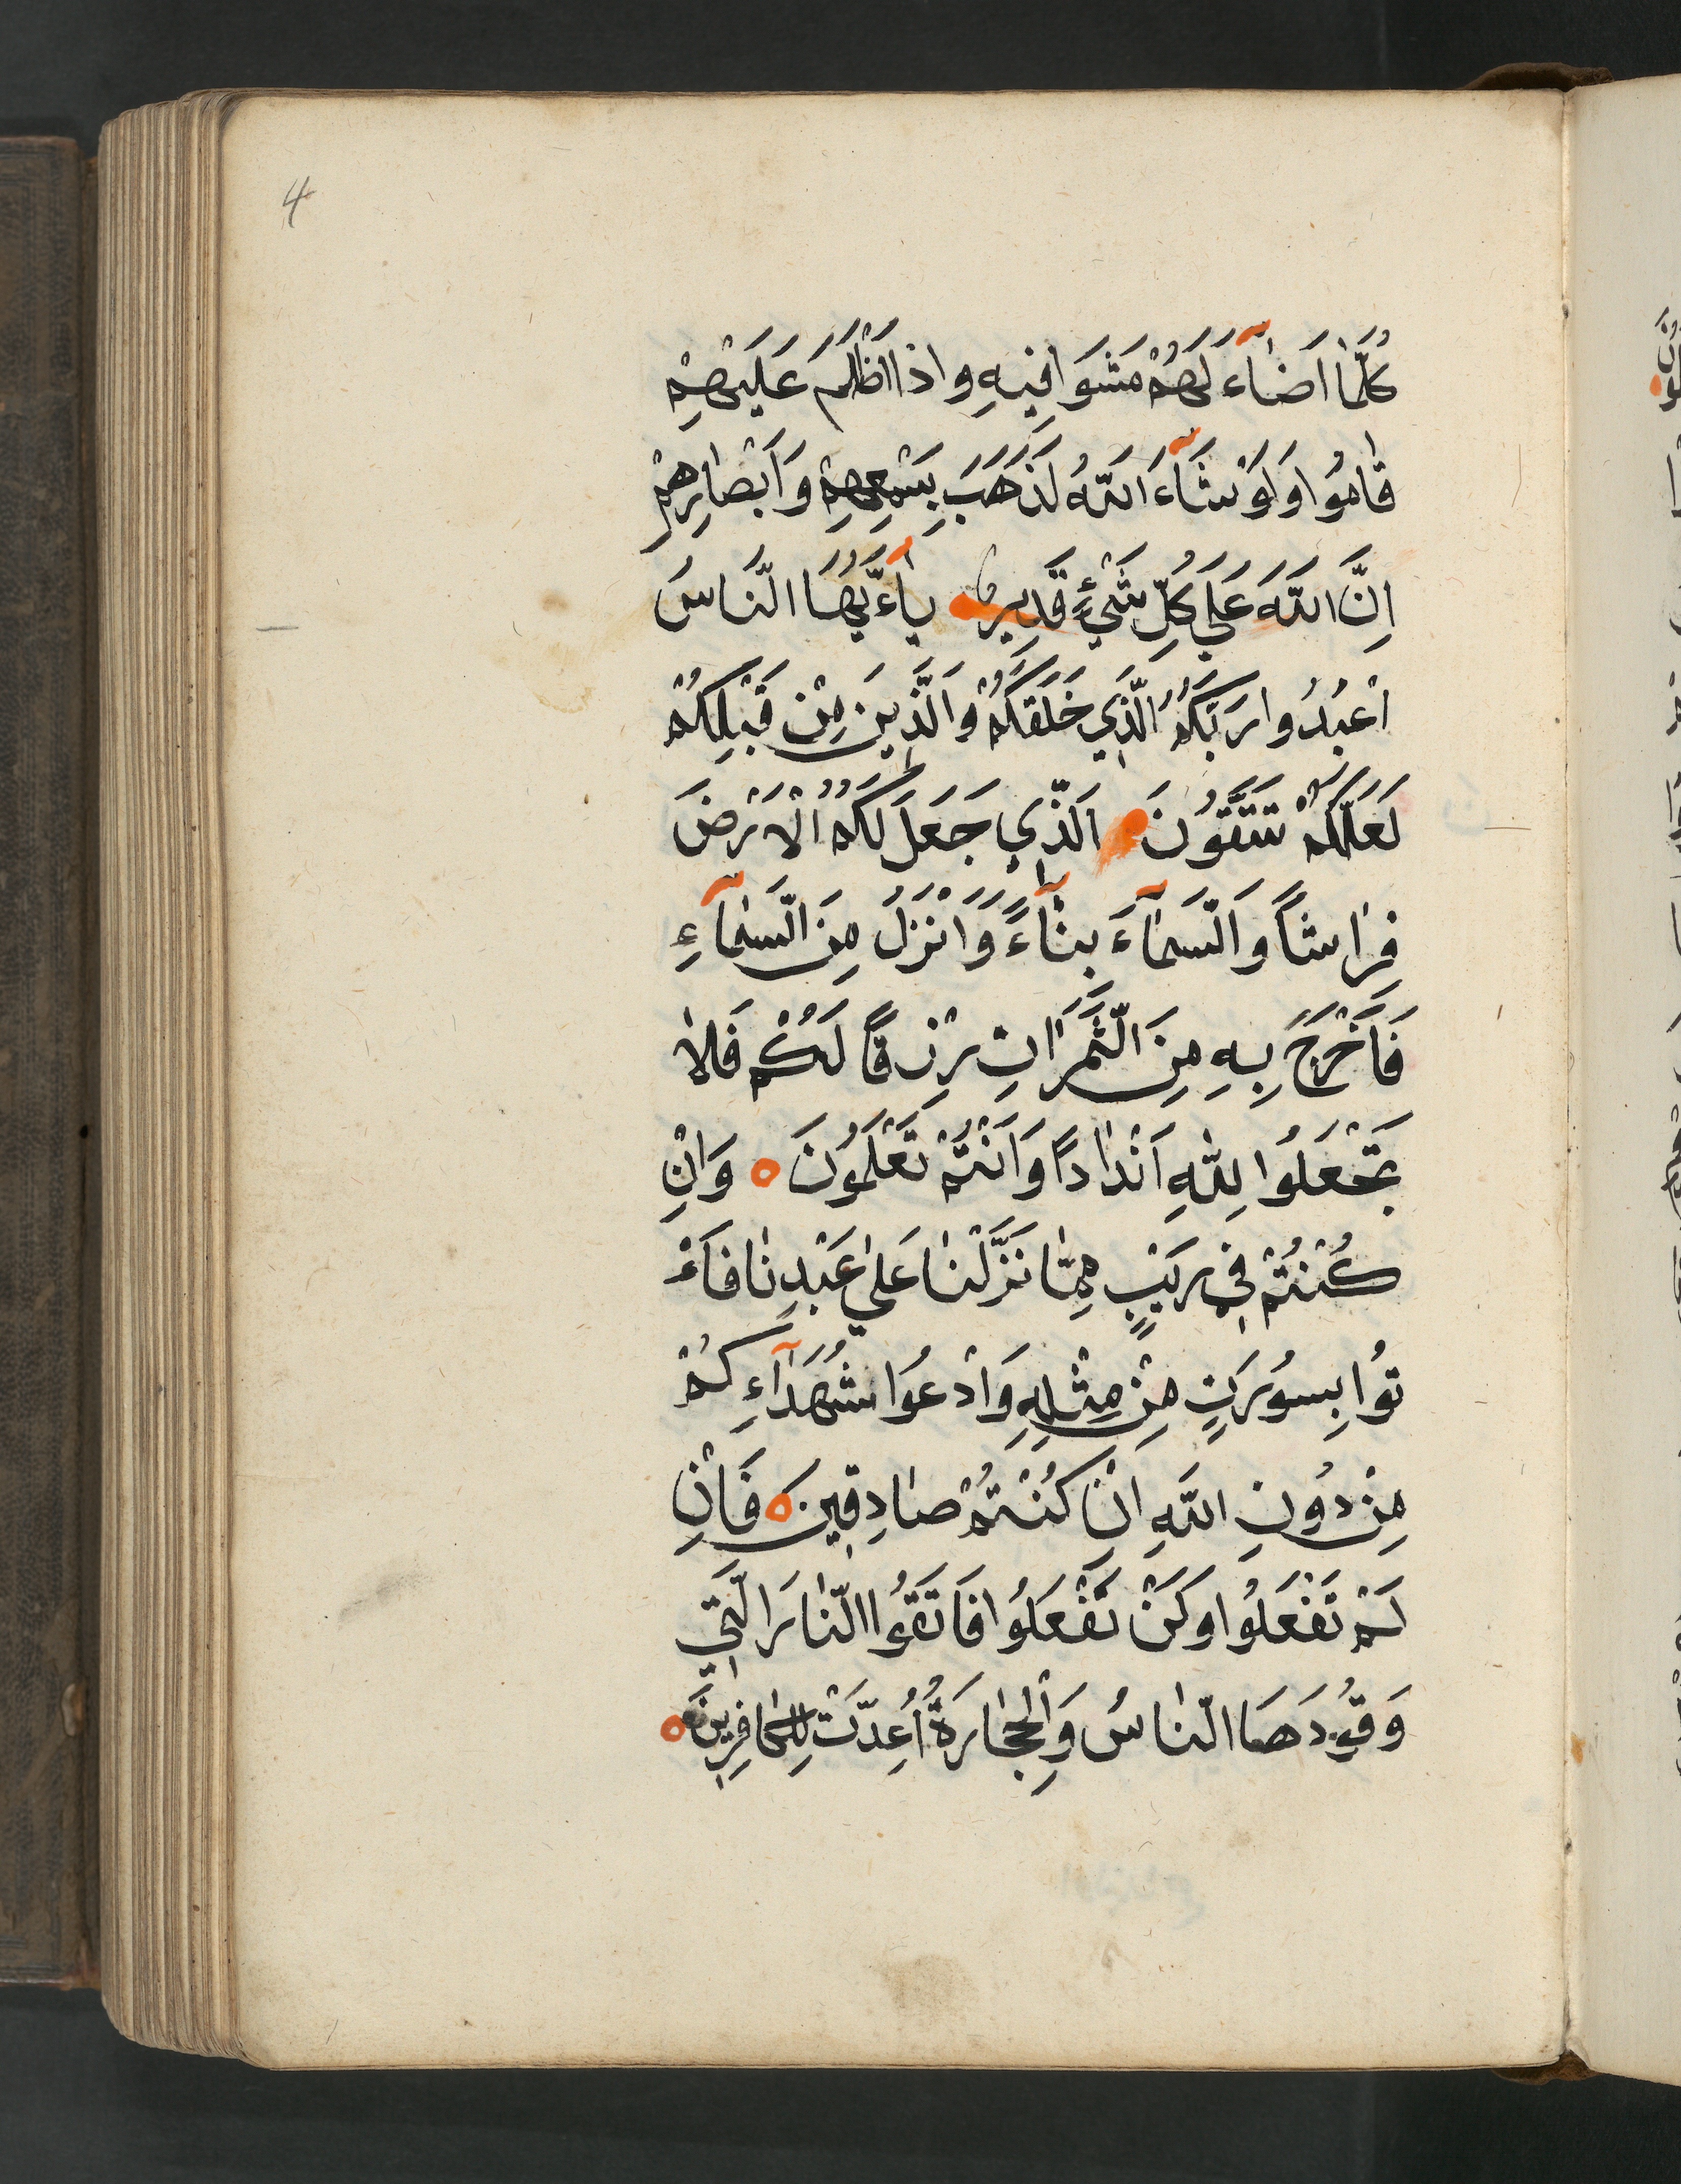 4
كُلَّمٰا اَضٰآءَ لَهُمْ مَشَوَا فِيهِ وَاذَا اَظْلَمَ عَلَيْهِمْ
قٰامُوا وَلَوْ شَآءَ اللَّهُ لَذَهَبَ بِسَمْعِهِمْ وَاَبْصٰارِهِمْ
اِنَّ اللَّهَ عَلَي كُلِّ شَيْءٍ قَدِيرٌ يٰاءَيُّهَا النَّاسُ
اعْبُدُوا رَبَّكُمُ الَّذِي خَلَقَكُمْ وَالَّذِينَ مِنْ قَبْلِكُمْ
لَعَلَّكُمْ تَتَّقُونَ اَلَّذِي جَعَلَ لَكُمُ الْاَرْضَ
فِرٰاشاً وَالسَّمٰآءَ بِنٰآءً وَاَنْزَلَ مِنَ السَّمٰآءِ
فَاَخْرَجَ بِهِ مِنَ الثَّمَرٰاتِ رِزْقاً لَكُمْ فَلاٰ
تَجْعَلُوا لِلّٰهِ اَنْدٰاداً وَاَنْتُمْ تَعْلَمُونَ وَاِنْ
كُنْتُمْ فِي رَيْبٍ مِمّٰا نَزَّلْنٰا عَلٰي عَبْدِنٰا فَاَءْ
تُوا بِسُورَتٍ مِنْ مِثْلِهِ وَادْعُوا شُهَدَآءِكُمْ
مِنْ دُونِ اللَّهِ اِنْ كُنْتُمْ صٰادِقِينَ فَاِنْ
لَمْ تَفْعَلُوا وَلَنْ تَفْعَلُوا فَاتَقَوُا النّٰارَ الَّتِي
وَقُودَهَا النّٰاسُ وَالْحِجٰارَةُ اُعِدَّتْ لِلْكٰافِرِينَ